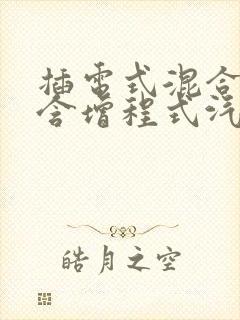 插电式混合
含增程式汽
皓月之空